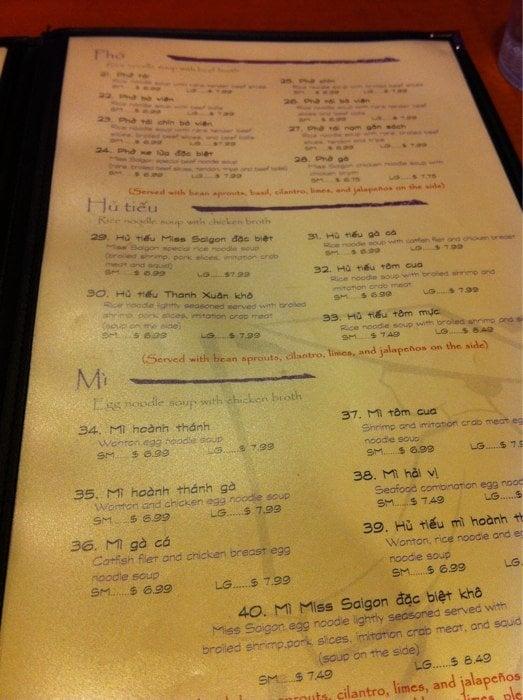 Phở
Rice noodle soup with beef broth
21. Phở tái
Rice noodle soup with rare tender beef slices
SM.....$ 6.99 LG.....$ 7.99
22. Phở bò viên
Rice noodle soup with beef balls
SM.....$ 6.99 LG.....$ 7.99
23. Phở tái chín bò viên
Rice noodle soup with rare tender beef
slices, broiled beef slices, and beef balls
SM.....$ 6.99 LG.....$7.99
24. Phở xe lửa đặc biệt
Miss Saigon special beef noodle soup
(rare, broiled beef slices, tendon, tripe and beef balls)
SM.....$ 6.99 LG.....$ 7.99
25. Phở chín
SM.....$ 6.99 LG.....$ 7.99
26. Phở tái bò viên
Rice noodle soup with rare tender beef
slices and beef balls
SM.....$ 6.99 LG.....$ 7.99
27. Phở tái nạm gân sách
SM.....$ 6.99 LG.....$ 7.99
28. Phở gà
Miss Saigon chicken noodle soup with
chicken broth
SM.....$ 6.75 LG.....$ 7.75
(Served with bean sprouts, basil, cilantro, limes, and jalapeños on the side)
Hủ tiếu
Rice noodle soup with chicken broth
29. Hủ tiếu Miss Saigon đặc biệt
Miss Saigon special rice noodle soup
(broiled shrimp, pork slices, imitation crab
meat and squid)
SM.....$ 6.99 LG.....$7.99
30. Hủ tiếu Thanh Xuân khô
Rice noodle lightly seasoned served with broiled
shrimp, pork slices, imitation crab meat
(soup on the side)
SM.....$ 6.99 LG.....$ 7.99
31. Hủ tiếu gà cá
Rice noodle soup with catfish filet and chicken breast
SM.....$ 6.99 LG.....$ 7.99
32. Hủ tiếu tôm cua
Rice noodle soup with broiled shrimp and
imitation crab meat
SM.....$ 6.99 LG.....$ 7.99
33. Hủ tiếu tôm mực
Rice noodle soup with broiled shrimp and s
SM.....$ 7.49 LG.....$ 8.49
(Served with bean sprouts, cilantro, limes, and jalapeños on the side)
Mì
Egg noodle soup with chicken broth
34. Mì hoành thánh
Wonton egg noodle soup
SM.....$ 6.99 LG.....$ 7.99
35. Mì hoành thánh gà
Wonton and chicken egg noodle soup
SM.....$ 6.99 LG.....$ 7.99
36. Mì gà cá
Catfish filet and chicken breast egg
noodle soup
SM......$ 6.99 LG.....$ 7.99
37. Mì tôm cua
Shrimp and imitation crab meat eg
noodle soup
SM.....$ 6.99 LG.....$ 7.9
38. Mì hải vị
Seafood combination egg nood
SM.....$ 7.49 LG.....$
39. Hủ tiếu mì hoành t
Wonton, rice noodle and e
noodle soup
SM.....$ 6.99 LG....
40. Mì Miss Saigon đặc biệt khô
Miss Saigon egg noodle lightly seasoned served with
broiled shrimp,pork slices, imitation crab meat, and squid
(soup on the side)
SM.....$ 7.49 LG......$ 8.49
sprouts, cilantro, limes, and jalapeños
limes,